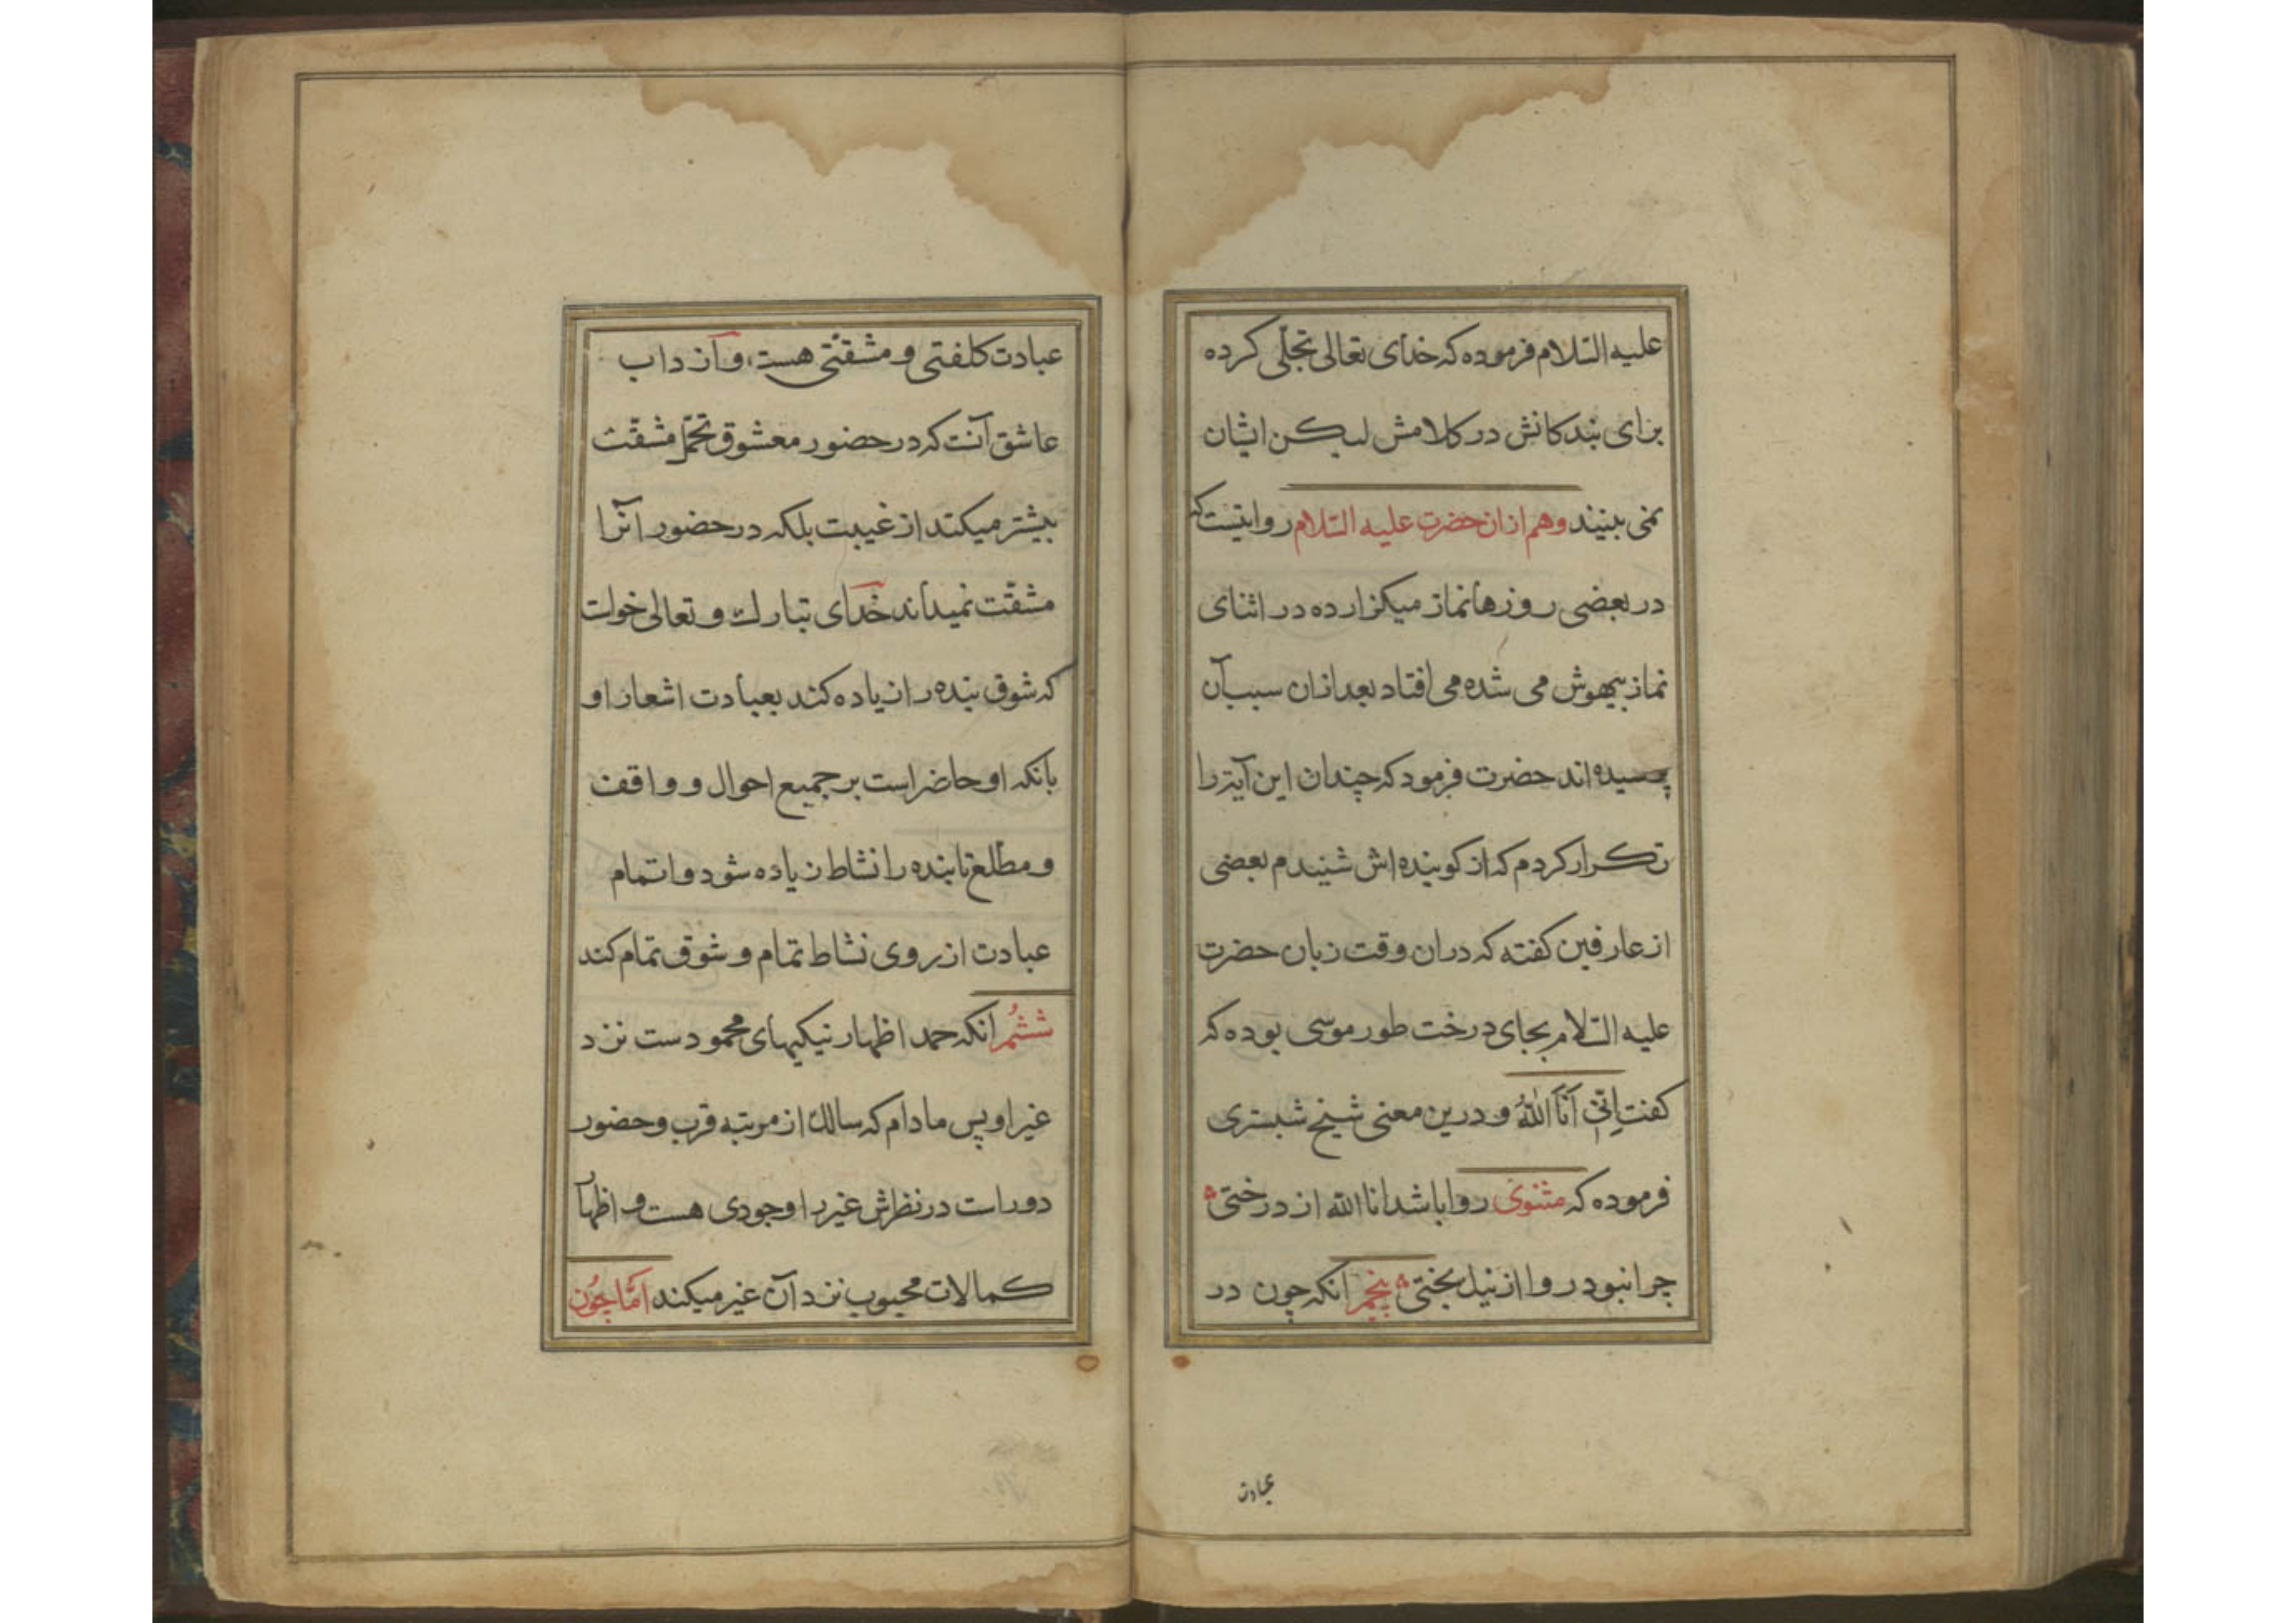 علیه السّلام فرموده که خدای تعالی تجلّی کرده
برای بندکانش در کلامش لیکن ایشان
نمی بینند وهم ازان حضرت علیه السّلام روایتست که
در بعضی روزها نماز میکزارده در اثنای
نماز بیهوش می شده می افتاد بعد ازان سبب آن
پرسیده اند حضرت فرمود که چندان این آیة را
تکرار کردم که از کوینده اش شنیدم بعضی
از عارفین کفته که دران وقت زبان حضرت
علیه السّلام بجای درخت طور موسی بوده که
کفت اِنّی اَنَا اللّٰهُ و درین معنی شیخ شبستری
فرموده که مثنوی روا باشد انا الله از درختی
چرا نبود روا از نیل بختی پنجم انکه چون در
عبادت
عبادت کلفتی و مشقتی هست، و آز داب
عاشق آنست که در حضور معشوق تحمّل مشقّت
بیشتر میکند از غیبت بلکه در حضور آنرا
مشقّت نمیداند خدای تبارك و تعالی خواست
که شوق بنده را زیاده کند بعبادت اشعار او
بانکه او حاضر است بر جمیع احوال و واقف
و مطّلع تا بنده را نشاط زیاده شود و اتمام
عبادت از روی نشاط تمام و شوق تمام کند
ششُم انکه حمد اظهار نیکیهای محمودست نزد
غیر او پس مادام که سالك از مرتبه قرب و حضور
دور است در نظرش غیر را وجودی هست و اظهار
کمالات محبوب نزد آن غیر میکند امّا چُون